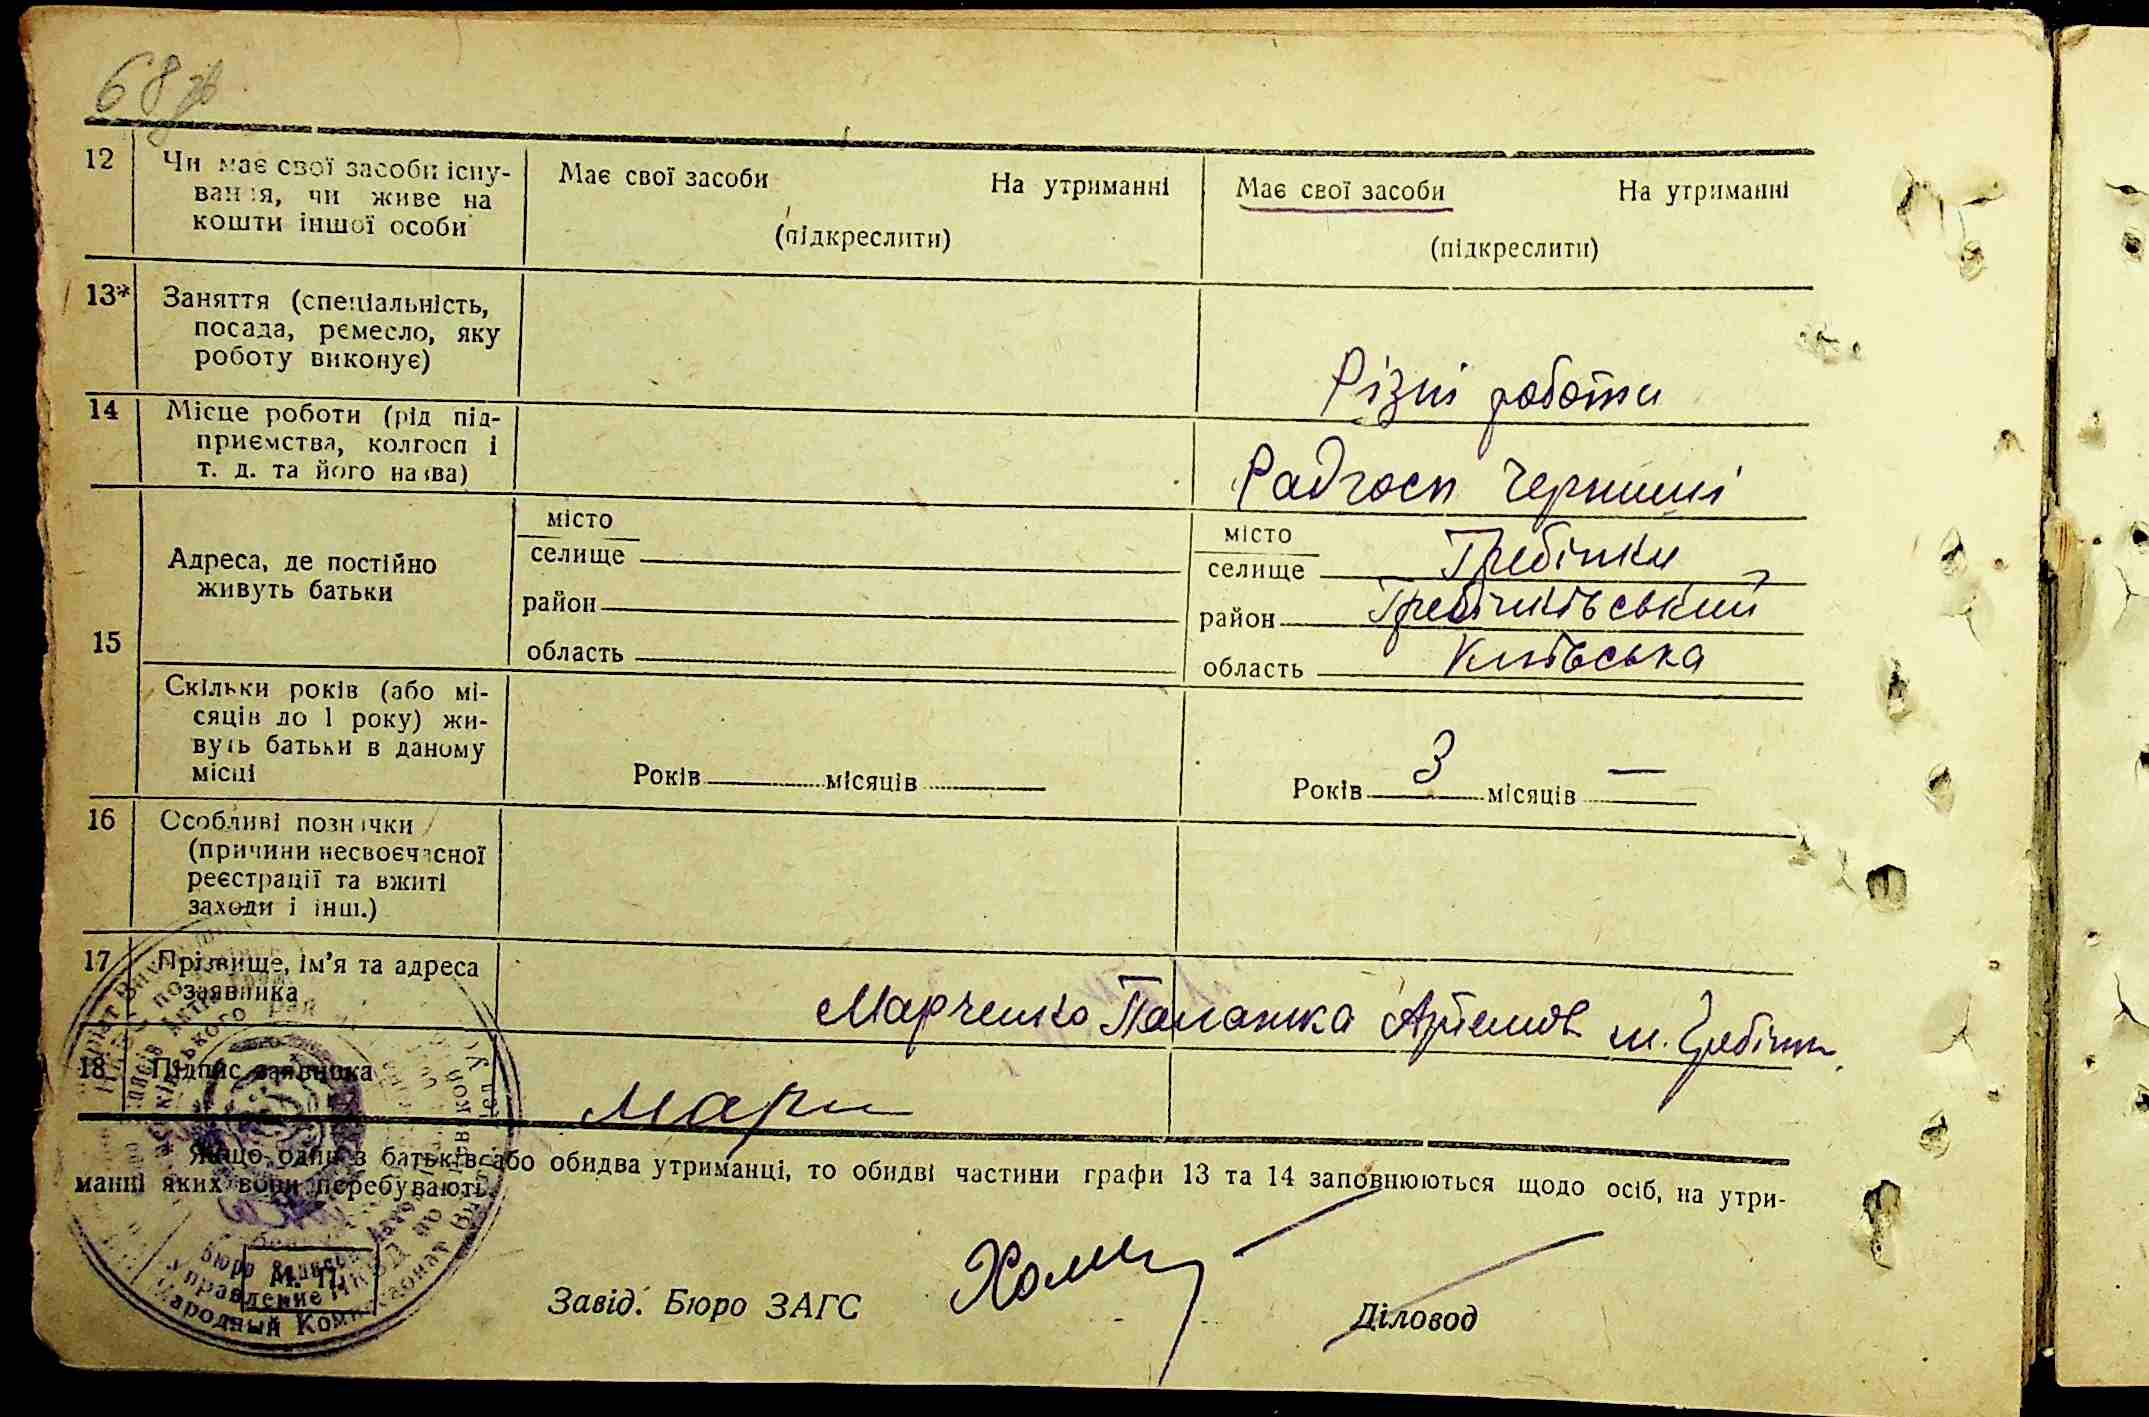 68 зв
12 Чи має свої засоби існу- Має свої засоби На утриманні Має свої засоби На утриманні
вання, чи живе на
кошти іншої особи (підкреслити) (підкреслити)
13* Заняття (спеціальність,
посада, ремесло, яку
роботу виконує) Різні роботи
14 Місце роботи (рід під-
приємства, колгосп і
т. д. та його назва) Радгосп
15 Адреса, де постійно
живуть батьки
місто місто
селище селище Гребінки
район район Гребінківський
область область Київська
Скільки років (або мі-
сяців до 1 року) жи-
вуть батьки в даному
місці Років місяців Років 3 місяців —
16 Особливі познички
(причини несвоєчасної
реєстрації та вжиті
заходи і інш.)
17 Прізвище, ім'я та адреса
заявника Марченко Палажка Артемов м. Гребінки
18 Підпис заявника Марч
Якщо один з батьків або обидва утриманці, то обидві частини графи 13 та 14 заповнюються щодо осіб, на утри-
манні яких вони перебувають.
М. П.
Завід. Бюро ЗАГС Діловод
Управление НКВД
Народный Комиссариат